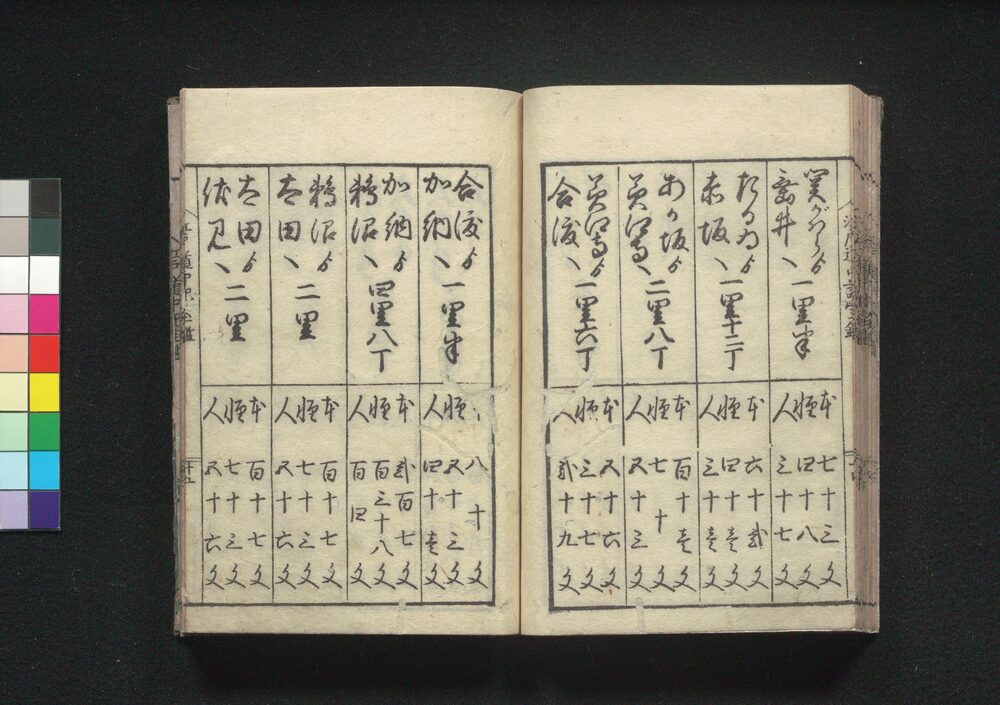 関がはらゟ
垂井へ 一里半
本 七十三文
軽 四十八文
人 三十七文
たるゐゟ
赤坂へ 一里十二丁
本 六十弐文
軽 四十壱文
人 三十壱文
あか坂ゟ
美江寺へ 二里八丁
本 百十壱文
軽 七十文
人 五十三文
美江寺ゟ
合渡へ 一里六丁
本 五十六文
軽 三十七文
人 弐十九文
合渡ゟ
加納へ 一里半
本 八十文
軽 五十三文
人 四十壱文
加納ゟ
鵜沼へ 四里八丁
本 弐百七文
軽 百三十八文
人 百四文
鵜沼ゟ
太田へ 二里
本 百十七文
軽 七十三文
人 五十六文
太田ゟ
伏見へ 二里
本 百十七文
軽 七十三文
人 五十六文